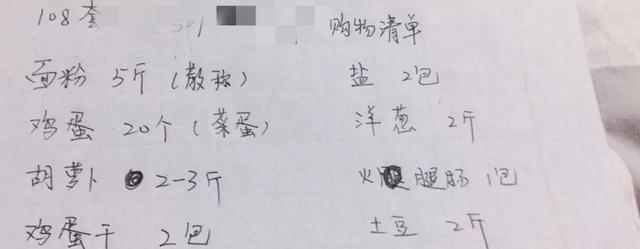 108套 购物清单
面粉 5斤 (散称) 盐 2包
鸡蛋 20个 (菜蛋) 洋葱 2斤
胡萝卜 2-3斤 火腿肠 1包
鸡蛋干 2包 土豆 2斤